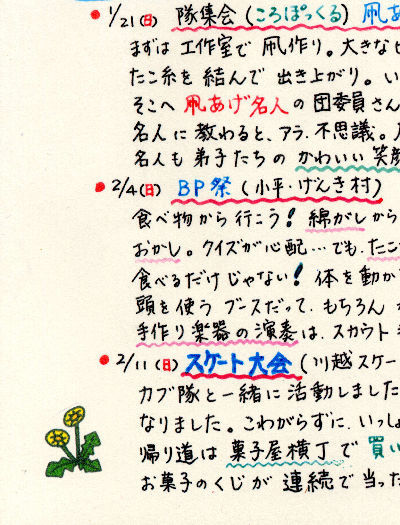 1/21(日) 隊集会(ころぽっくる) 凧あ
まずは 工作室で 凧作り。大きなビ
たこ糸を 結んで 出き上がり。い
そこへ 凧あげ名人の 団委員さん
名人に 教わると、アラ、不思議。
名人も 弟子たちの かわいい 笑顔
2/4(日) BP祭 (小平・げんき村)
食べ物から 行こう! 綿がしから
おかし。クイズが心配…でも、たこ
食べるだけじゃない! 体を動か
頭を使う ブースだって、もちろん
手作り楽器の 演奏は、スカウト
2/11(日) スケート大会 (川越スケー
カブ隊と一緒に 活動しました
なりました。こわがらずに、いっしょ
帰り道は 菓子屋横丁で 買い
お菓子の、くじが 連続で 当った